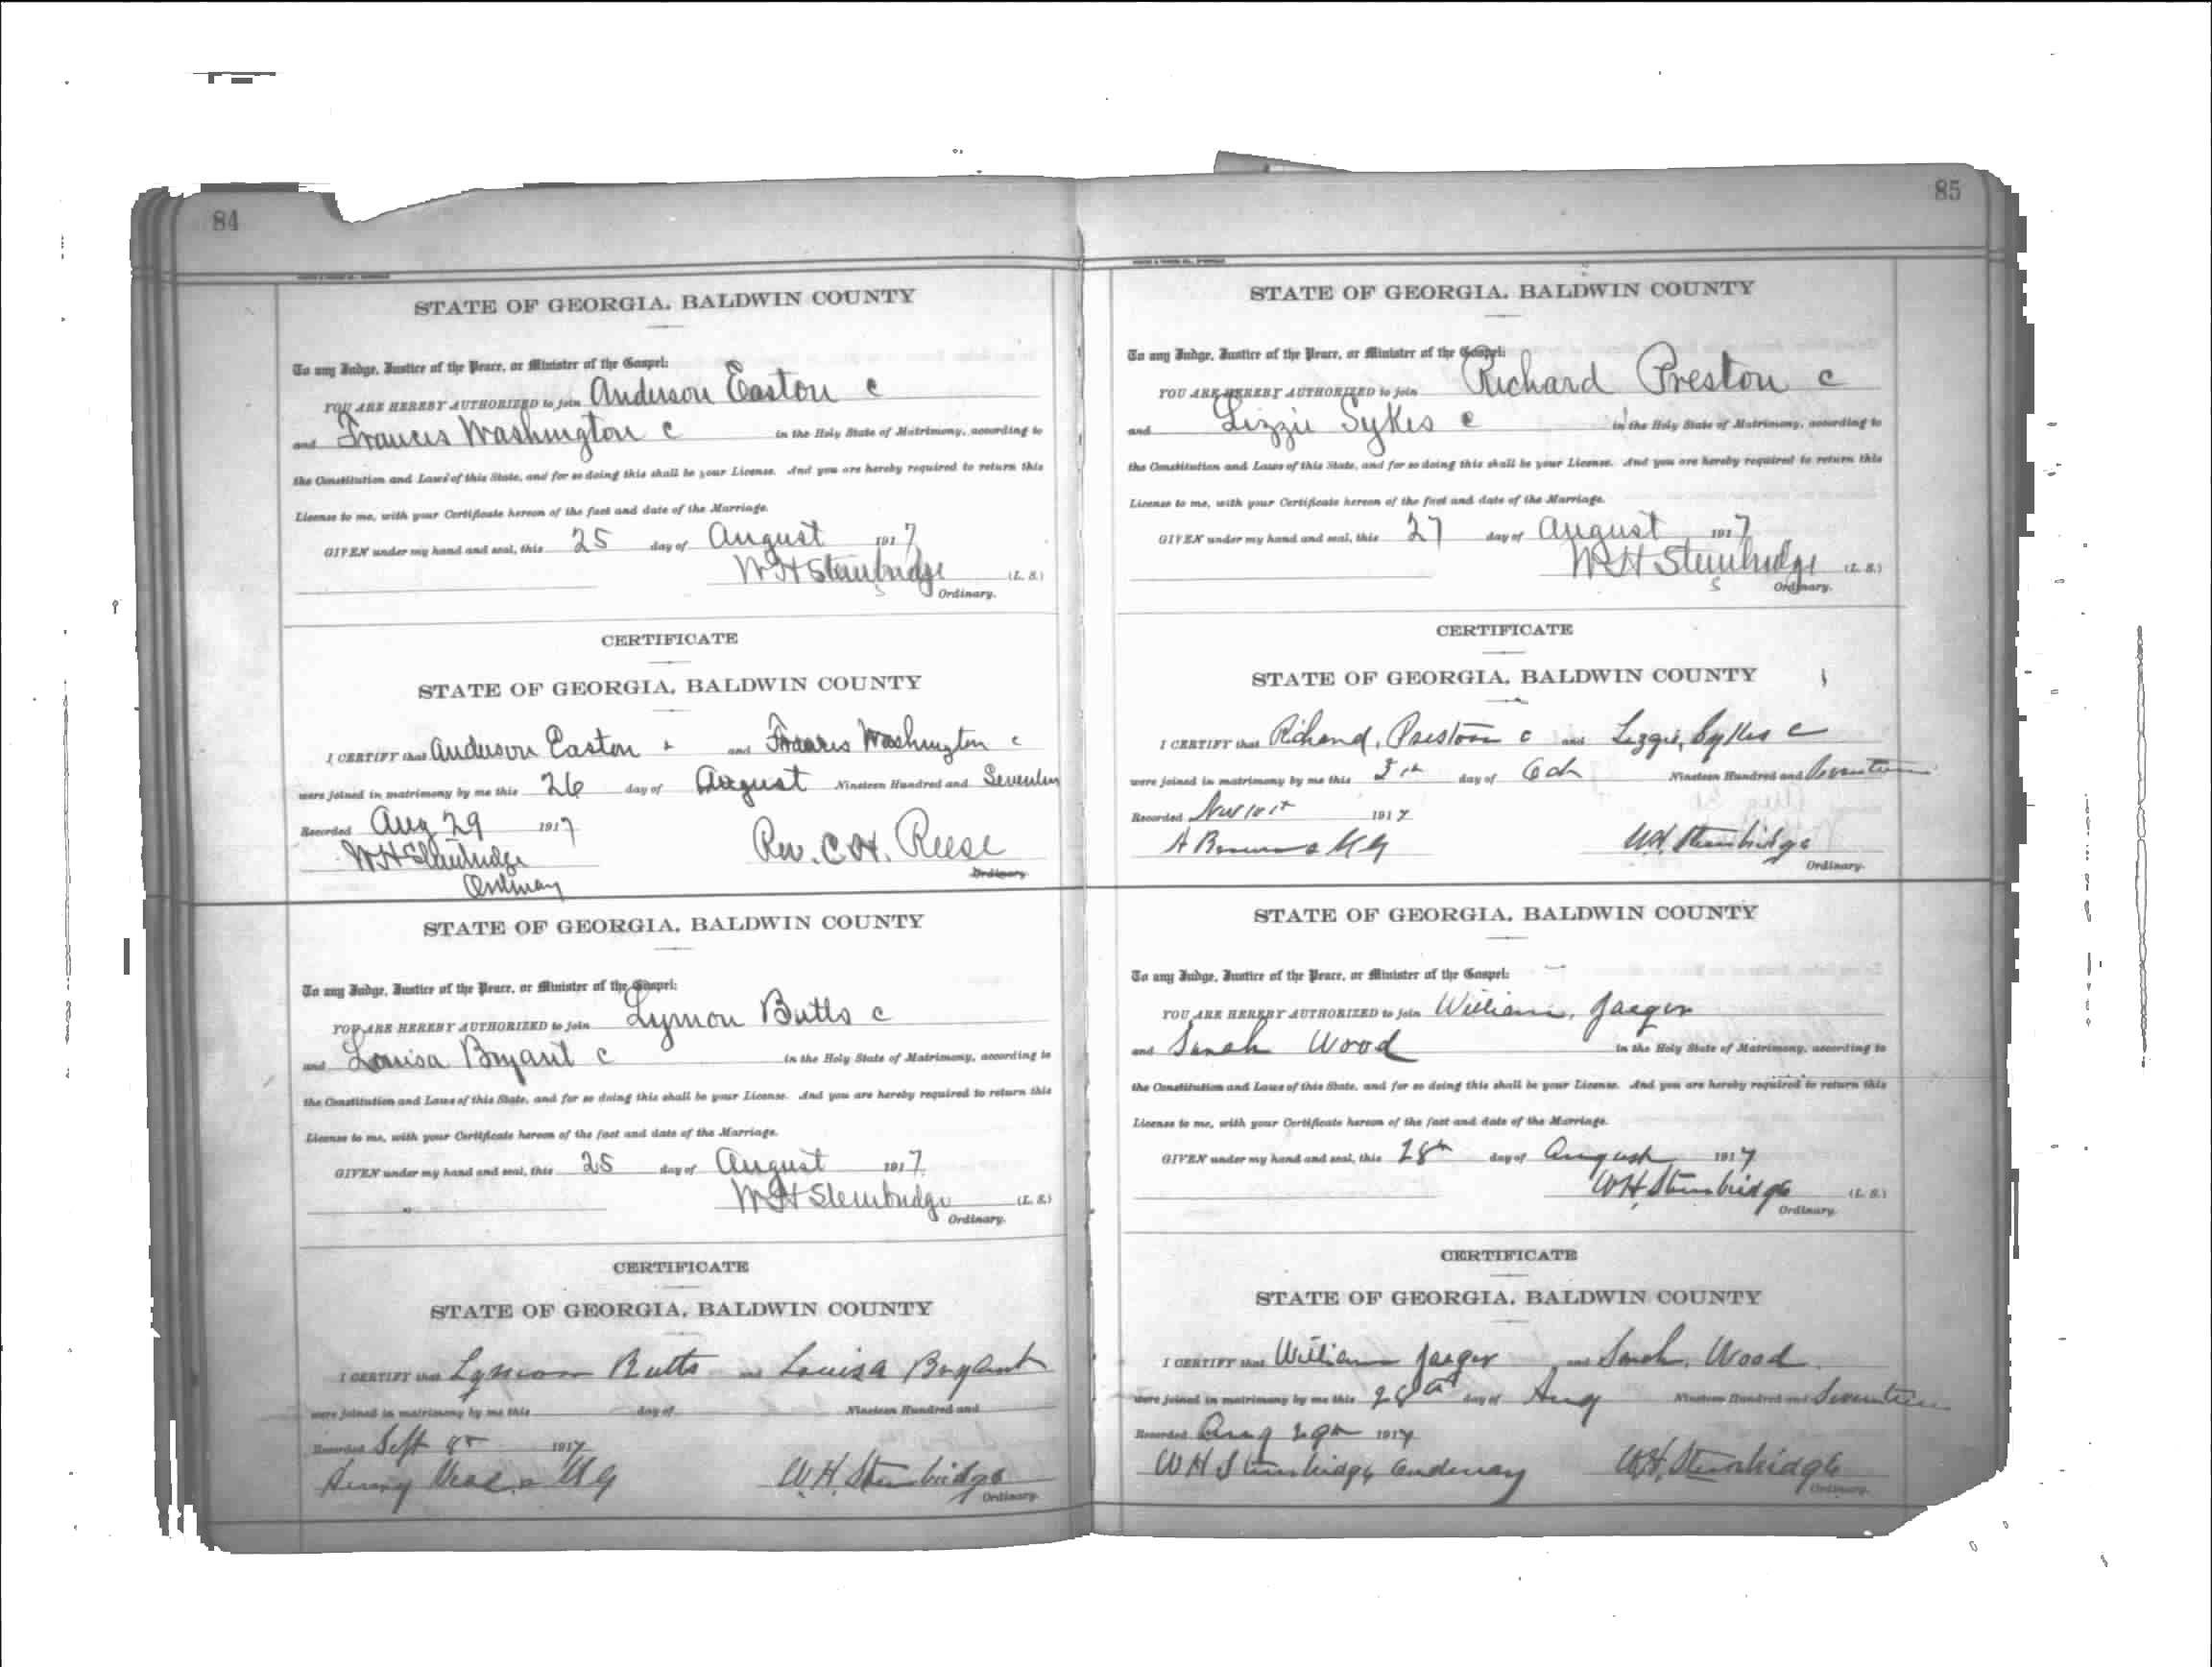 84
STATE OF GEORGIA, BALDWIN COUNTY
To any Judge, Justice of the Peace, or Minister of the Gospel:
YOU ARE HEREBY AUTHORIZED to join Anderson Easton c
and Francis Washington c in the Holy State of Matrimony, according to
the Constitution and Laws of this State, and for so doing this shall be your License. And you are hereby required to return this
License to me, with your Certificate hereon of the fact and date of the Marriage.
GIVEN under my hand and seal, this 25 day of August 1917
W H Stembridge (L. S.)
Ordinary.
CERTIFICATE
STATE OF GEORGIA, BALDWIN COUNTY
I CERTIFY that Anderson Easton and Francis Washington c
were joined in matrimony by me this 26 day of August Nineteen Hundred and Seventen
Recorded Aug 29 1917
W H Stembridge Rev. C H. Reese
Ordinary Ordinary
STATE OF GEORGIA, BALDWIN COUNTY
To any Judge, Justice of the Peace, or Minister of the Gospel:
YOU ARE HEREBY AUTHORIZED to join Lymon Butts c
and Louisa Bryant c in the Holy State of Matrimony, according to
the Constitution and Laws of this State, and for so doing this shall be your License. And you are hereby required to return this
License to me, with your Certificate hereon of the fact and date of the Marriage.
GIVEN under my hand and seal, this 25 day of August 1917
W H Stembridge (L. S.)
Ordinary.
CERTIFICATE
STATE OF GEORGIA, BALDWIN COUNTY
I CERTIFY that Lymon Butts and Louisa Bryant
were joined in matrimony by me this day of Nineteen Hundred and
Recorded Sept 8th 1917
Henry W.H. Stembridge
Ordinary.
85
STATE OF GEORGIA, BALDWIN COUNTY
To any Judge, Justice of the Peace, or Minister of the Gospel:
YOU ARE HEREBY AUTHORIZED to join Richard Preston c
and Lizzie Sykes c in the Holy State of Matrimony, according to
the Constitution and Laws of this State, and for so doing this shall be your License. And you are hereby required to return this
License to me, with your Certificate hereon of the fact and date of the Marriage.
GIVEN under my hand and seal, this 27 day of August 1917
W H Stembridge (L. S.)
Ordinary.
CERTIFICATE
STATE OF GEORGIA, BALDWIN COUNTY
I CERTIFY that Richard, Preston c and Lizzie, Sykes c
were joined in matrimony by me this day of Nineteen Hundred and Seventeen
Recorded 1917
W.H. Stembridge
Ordinary.
STATE OF GEORGIA, BALDWIN COUNTY
To any Judge, Justice of the Peace, or Minister of the Gospel:
YOU ARE HEREBY AUTHORIZED to join William, Jaeger
and Sarah Wood in the Holy State of Matrimony, according to
the Constitution and Laws of this State, and for so doing this shall be your License. And you are hereby required to return this
License to me, with your Certificate hereon of the fact and date of the Marriage.
GIVEN under my hand and seal, this 28th day of August 1917
W H Stembridge (L. S.)
Ordinary.
CERTIFICATE
STATE OF GEORGIA, BALDWIN COUNTY
I CERTIFY that William Jaeger and Sarah, Wood
were joined in matrimony by me this 28th day of Aug Nineteen Hundred and Seventeen
Recorded Aug 29th 1917
W H Stembridge Ordinary W.H. Stembridge
Ordinary.